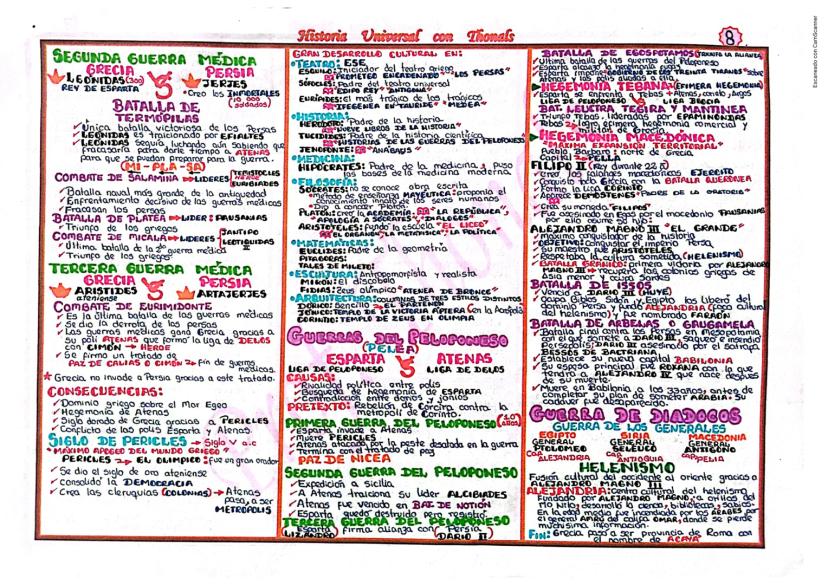 Historia Universal con Thonals
8
SEGUNDA GUERRA MÉDICA
GRECIA
PERSIA
LEÓNIDAS(300)
JERJES
REY DE ESPARTA
Creo los INMORTALES
(10 000 soldados)
BATALLA DE
TERMÓPILAS
Única batalla victoriosa de los Persas
LEÓNIDAS es traicionado por EFIALTES
LEÓNIDAS seguía luchando aún sabiendo que
fracasaría para darle tiempo a ATENAS
para que se puedan preparar para la guerra.
(MI-PLA-SA)
COMBATE DE SALAMINA → LIDERES
TEMÍSTOCLES
HÉROE
EURIBIADES
Batalla naval más grande de la antiguedad
Enfrentamiento decisivo de las guerras médicas
Fracasan los persas
BATALLA DE PLATEA → LIDER: PAUSANIAS
Triunfo de los griegos
COMBATE DE MICALA → LIDERES
JANTIPO
LEOTIQUIDAS II
Ultima batalla de la 2º guerra médica
Triunfo de los griegos
TERCERA GUERRA MÉDICA
GRECIA
PERSIA
ARISTIDES
ateniense
ARTAJERJES
COMBATE DE EURIMIDONTE
Es la última batalla de las guerras médicas
Se dio la derrota de los persas
Las guerras médicas ganó Grecia, gracias a
su poli ATENAS que formó la liga de DELOS
con CIMÓN → HEROE
Se firmo un tratado de
PAZ DE CALIAS O CIMÓN → fin de guerras
médicas.
* Grecia no invade a Persia gracias a este tratado.
CONSECUENCIAS:
Dominio griego sobre el Mar Egeo
Hegemonía de Atenas
Siglo dorado de Grecia gracias a PERICLES
Conflicto de las polis Esparta y Atenas.
SIGLO DE PERICLES → Siglo V a.c
"MÁXIMO APOGEO DEL MUNDO GRIEGO"
PERICLES → EL OLIMPICO: Fue un gran orador
Se dio el siglo de oro ateniense
consolido la DEMOCRACIA
Crea las cleruquias (COLONIAS) → Atenas
pasa a ser
METRÓPOLIS
GRAN DESARROLLO CULTURAL EN:
TEATRO: ESE
ESQUILO: Iniciador del teatro griego
"PROMETEO ENCADENADO" "LOS PERSAS"
SÓFOCLES: Padre del teatro universal
"EDIPO REY" "ANTIGONA"
EURÍPIDES: El más trágico de los trágicos
"IFEGENEA EN TAURIDE" "MEDEA"
HISTORIA:
HERODOTO: Padre de la historia
"NUEVE LIBROS DE LA HISTORIA"
TUCIDIDES: Padre de la historia científica
"HISTORIAS DE LAS GUERRAS DEL PELOPONESO"
JENOFONTE: "ANABASIS"
MEDICINA:
HIPÓCRATES: Padre de la medicina y puso
las bases de la medicina moderna.
FILOSOFÍA:
SÓCRATES: no se conoce obra escrita
PLATÓN: creó la ACADEMIA. "LA REPÚBLICA",
"APOLOGÍA A SOCRATES" "DIALOGES"
ARISTÓTELES: fundo la escuela "EL LICEO"
"EL ORGANON", "LA METAFISICA", "LA POLÍTICA"
MATEMÁTICAS:
EUCLIDES: Padre de la geometría
PITAGORAS:
TALES DE MILETO:
ESCULTURA: Antropomorfista y realista
MIRÓN: El discóbolo
FIDIAS: Zeus olímpico "ATENEA DE BRONCE"
ARQUITECTURA: COLUMNAS DE TRES ESTILOS DISTINTOS
DÓRICO: Sencillo → EL PARTENÓN
JÓNICO: TEMPLO DE LA VICTORIA ÁPTERA (en la Acrópolis)
CORINTIO: TEMPLO DE ZEUS EN OLIMPIA
GUERRAS DEL PELOPONESO
(PELEA)
ESPARTA
ATENAS
LIGA DE PELOPONESO
LIGA DE DELOS
CAUSAS:
Rivalidad política entre polis
Búsqueda de hegemonía de ESPARTA
Contradicción entre dorios y jonios
PRETEXTO: Rebelión de Corcira contra la
metrópoli de Corinto.
PRIMERA GUERRA DEL PELOPONESO (10 años)
Esparta invade a Atenas
Muere PERICLES
Atenas atacada por la peste desatada en la guerra
Termina con tratado de paz
PAZ DE NICEA
SEGUNDA GUERRA DEL PELOPONESO
Expedición a Sicilia
A Atenas traiciona su lider ALCIBIADES
Atenas fue vencido en BAT. DE NOTIÓN
Esparta quedo destruida pero resistió.
TERCERA GUERRA DEL PELOPONESO
Esparta firma alianza con Persia
(LIZANDRO)
(DARIO II)
BATALLA DE EGOSPOTAMOS
Ultima batalla de las guerras del Peloponeso
Esparta adquirió la hegemonía polis
Esparta impone GOBIERNO DE LOS TREINTA TIRANOS sobre
Atenas y las polis aliadas a ella.
HEGEMONÍA TEBANA (EFIMERA HEGEMONÍA)
Esparta se enfrenta a Tebas + Atenas, Corinto y Argos
LIGA DE PELOPONESO
LIGA BEOCIA
BAT. LEUTRA, TEGIRA Y MANTINEA
Triunfo Tebas, liderados por EPAMINONDAS
Tebas logró efímera hegemonía comercial y
militar de Grecia.
HEGEMONÍA MACEDÓNICA
"MÁXIMA EXPANSIÓN TERRITORIAL"
Pueblo, Bárbaro: norte de Grecia
Capital → PELLA
FILIPO II (Rey durante 22 a)
Creo las falanges macedónicas EJERCITO
Conquistó toda Grecia con la BATALLA QUERONEA
Formo la Liga CORINTO
Aparece DEMÓSTENES "PADRE DE LA ORATORIA"
Crea su moneda "FILIPOS"
Fue asesinado en Egas por el macedonio PAUSANIAS
por ello asume su hijo:
ALEJANDRO MAGNO III "EL GRANDE"
Máximo conquistador de la historia
OBJETIVO: conquistar el imperio Persa
Su maestro fue ARISTÓTELES
Respetaba la cultura sometida (HELENISMO)
BATALLA GRÁNICO: primera victoria por ALEJANDRO
MAGNO III → recupera las colonias griegas de
Asia menor y ocupa Sardes
BATALLA DE ISSOS
Venció a DARIO III (HUYE)
ocupa Biblos, Sidón y Egipto los liberó del
dominio Persa y fundó ALEJANDRÍA (foco cultural
del helenismo) y fue nombrado FARAÓN
BATALLA DE ARBELAS o GAUGAMELA
Batalla final contra los Persas en Mesopotamia
con el que somete a DARIO III, saqueo e incendio
Persépolis; DARIO III asesinado por el sátrapa
BESSOS DE BACTRIANA
Establece su nueva capital BABILONIA
Su esposa principal fue ROXANA con la que
tendrá a ALEJANDRO IV que nace después
de su muerte.
Muere en Babilonia a los 33 años, antes de
completar su plan de someter ARABIA; su
cadáver fue desaparecido.
GUERRA DE DIADOCOS
GUERRA DE LOS GENERALES
EGIPTO
SIRIA
MACEDONIA
GENERAL
GENERAL
GENERAL
PTOLOMEO
SELEUCO
ANTÍGONO
CAP. ALEJANDRIA
CAP. ANTIOQUIA
CAP. PELLA
HELENISMO
Fusión cultural del occidente al oriente gracias a
ALEJANDRO MAGNO III
ALEJANDRÍA: centro cultural del helenismo
Fundado por ALEJANDRO MAGNO, a orillas del
río Nilo; desarrolló la ciencia, bibliotecas, sabios.
En la edad media fue incendiada por los ÁRABES por
el general AMRÚ del califa OMAR, donde se pierde
muchísima información.
FIN: Grecia pasó a ser provincia de Roma con
el nombre de ACAYA
Escaneado con CamScanner